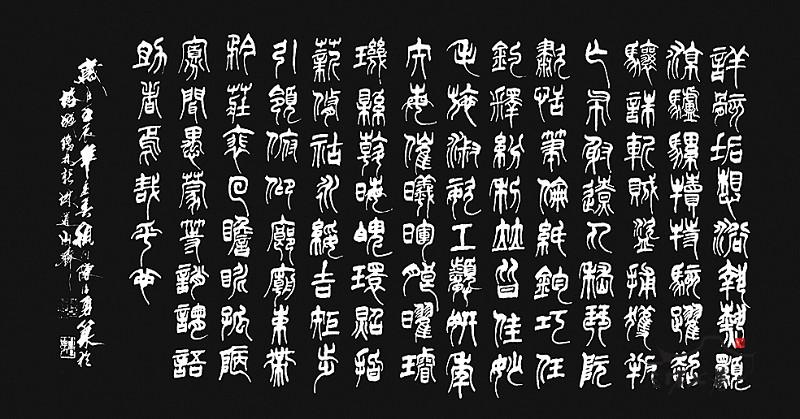 詳骸垢想浴執熱願
涼驢騾犢特駭躍超
驤誅斬賊盜捕獲叛
亡布射遼丸嵇琴阮
嘯恬筆倫紙鈞巧任
釣釋紛利竝皆佳妙
毛施淑姿工顰妍年
矢每催曦暉朗曜璿
璣縣斡晦魄環照指
薪修祜永綏吉矩步
引領俯仰廊廟束帶
矜莊裴回瞻眺孤陋
寡聞愚蒙等誚謂語
助者焉哉乎也